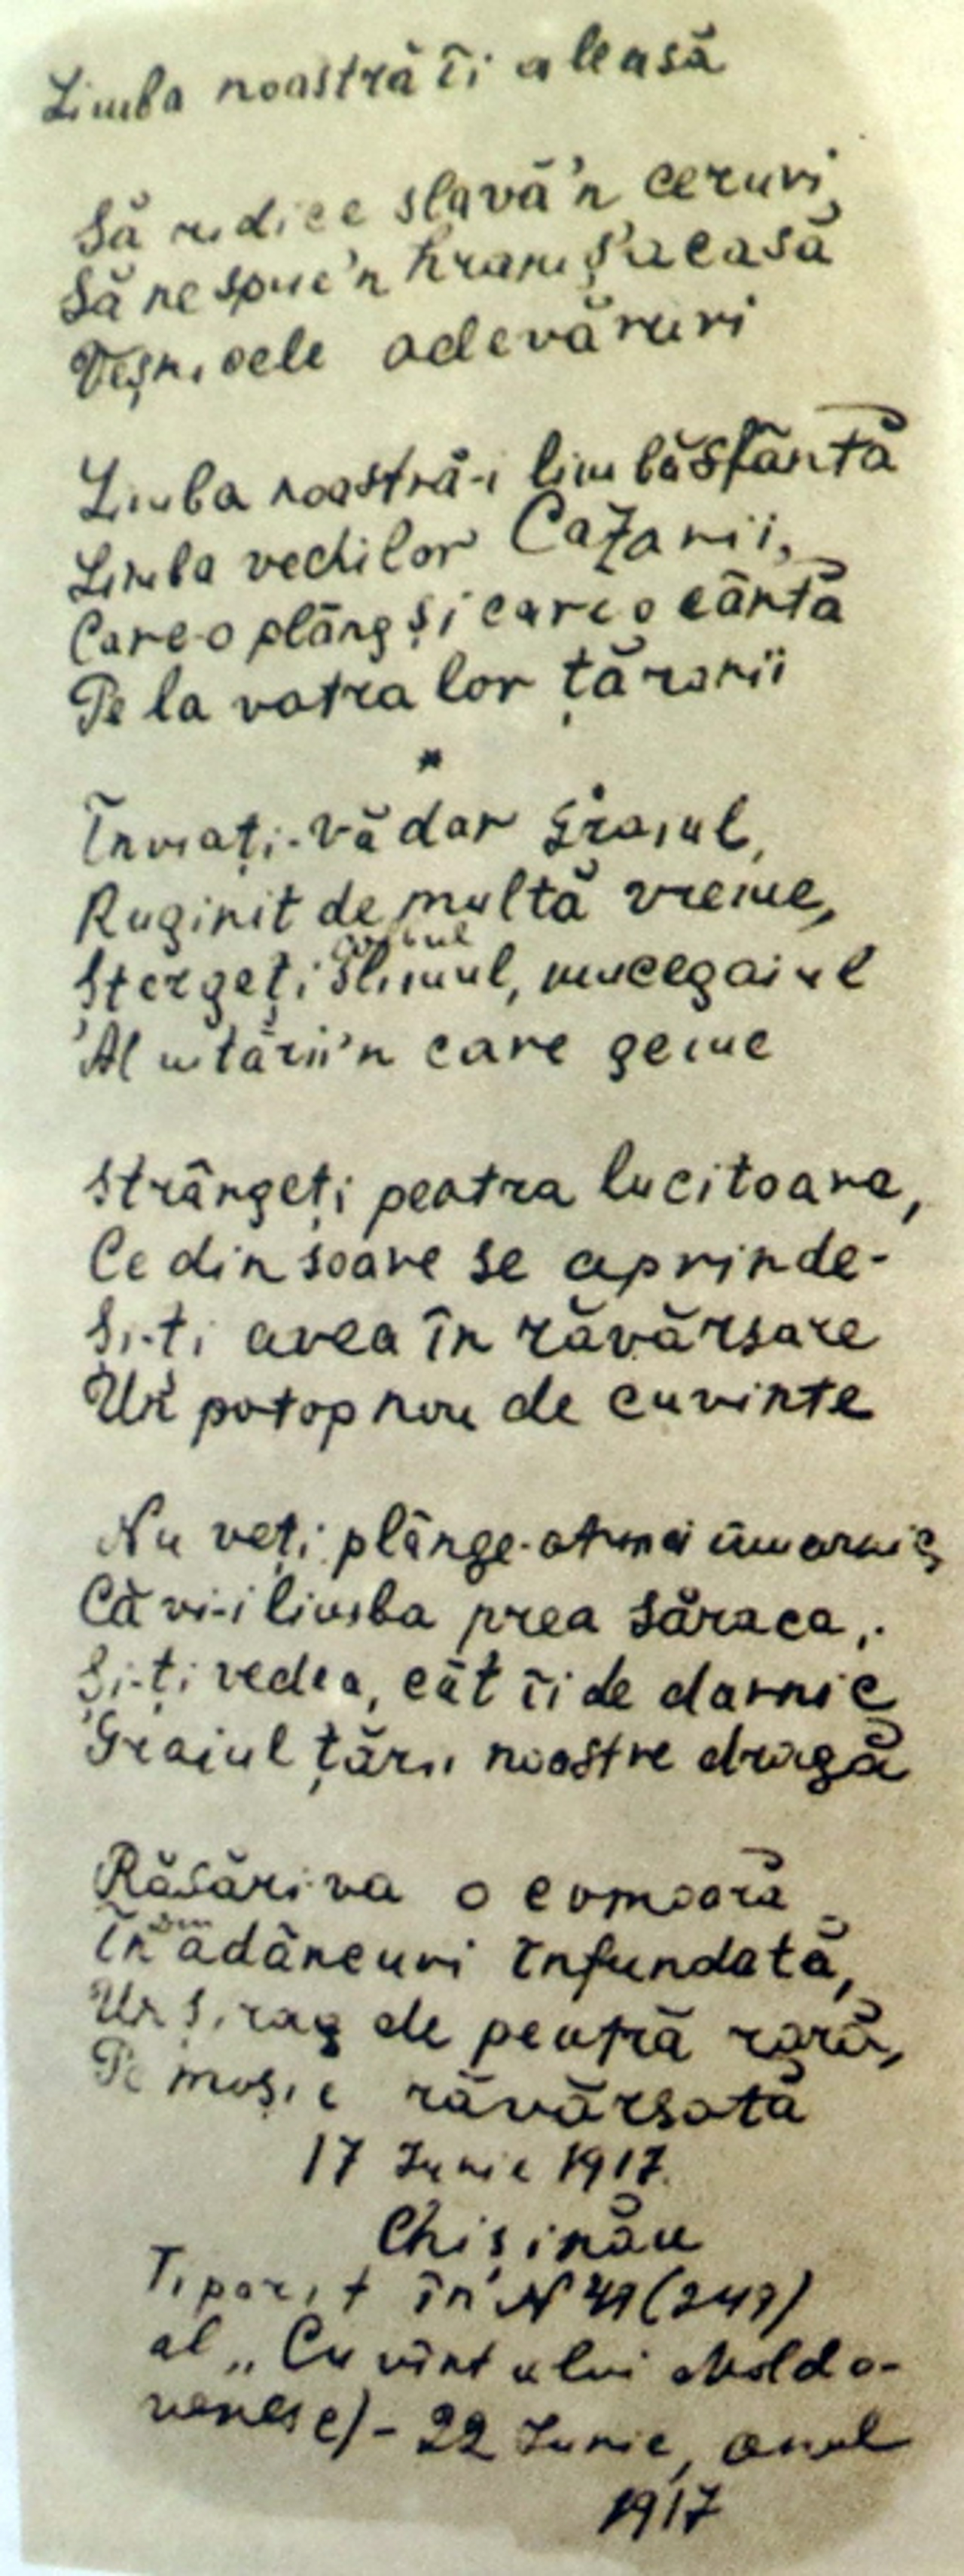 Limba noastră îi aleasă
Să ridice slavă'n ceruri,
Să ne spue'n hram ș'acasă
Veșnicele adevăruri
Limba noastră-i limbă sfântă
Limba vechilor Cazanii,
Care-o plâng și care o cântă
Pe la vatra lor țăranii
*
Înviați-vă dar graiul,
Ruginit de multă vreme,
Stergeți slinul, mucegaiul
Al uitării'n care geme
Strângeți peatra lucitoare,
Ce din soare se aprinde-
Și-ți avea în răvărsare
Un potop nou de cuvinte
Nu veți plânge-atunci amarnic,
Că vi-i limba prea săraca,
Și-ți vedea, cât îi de darnic
Graiul țării noastre dragă
Răsări va o comoară
În adâncuri înfundată,
Un șirag de peatră rară,
Pe moșie răvărsată
17 Iunie 1917.
Chișinău
Tipărit în N 41 (247)
al „Cuvîntului Moldo-
venesc) - 22 Iunie, anul
1917